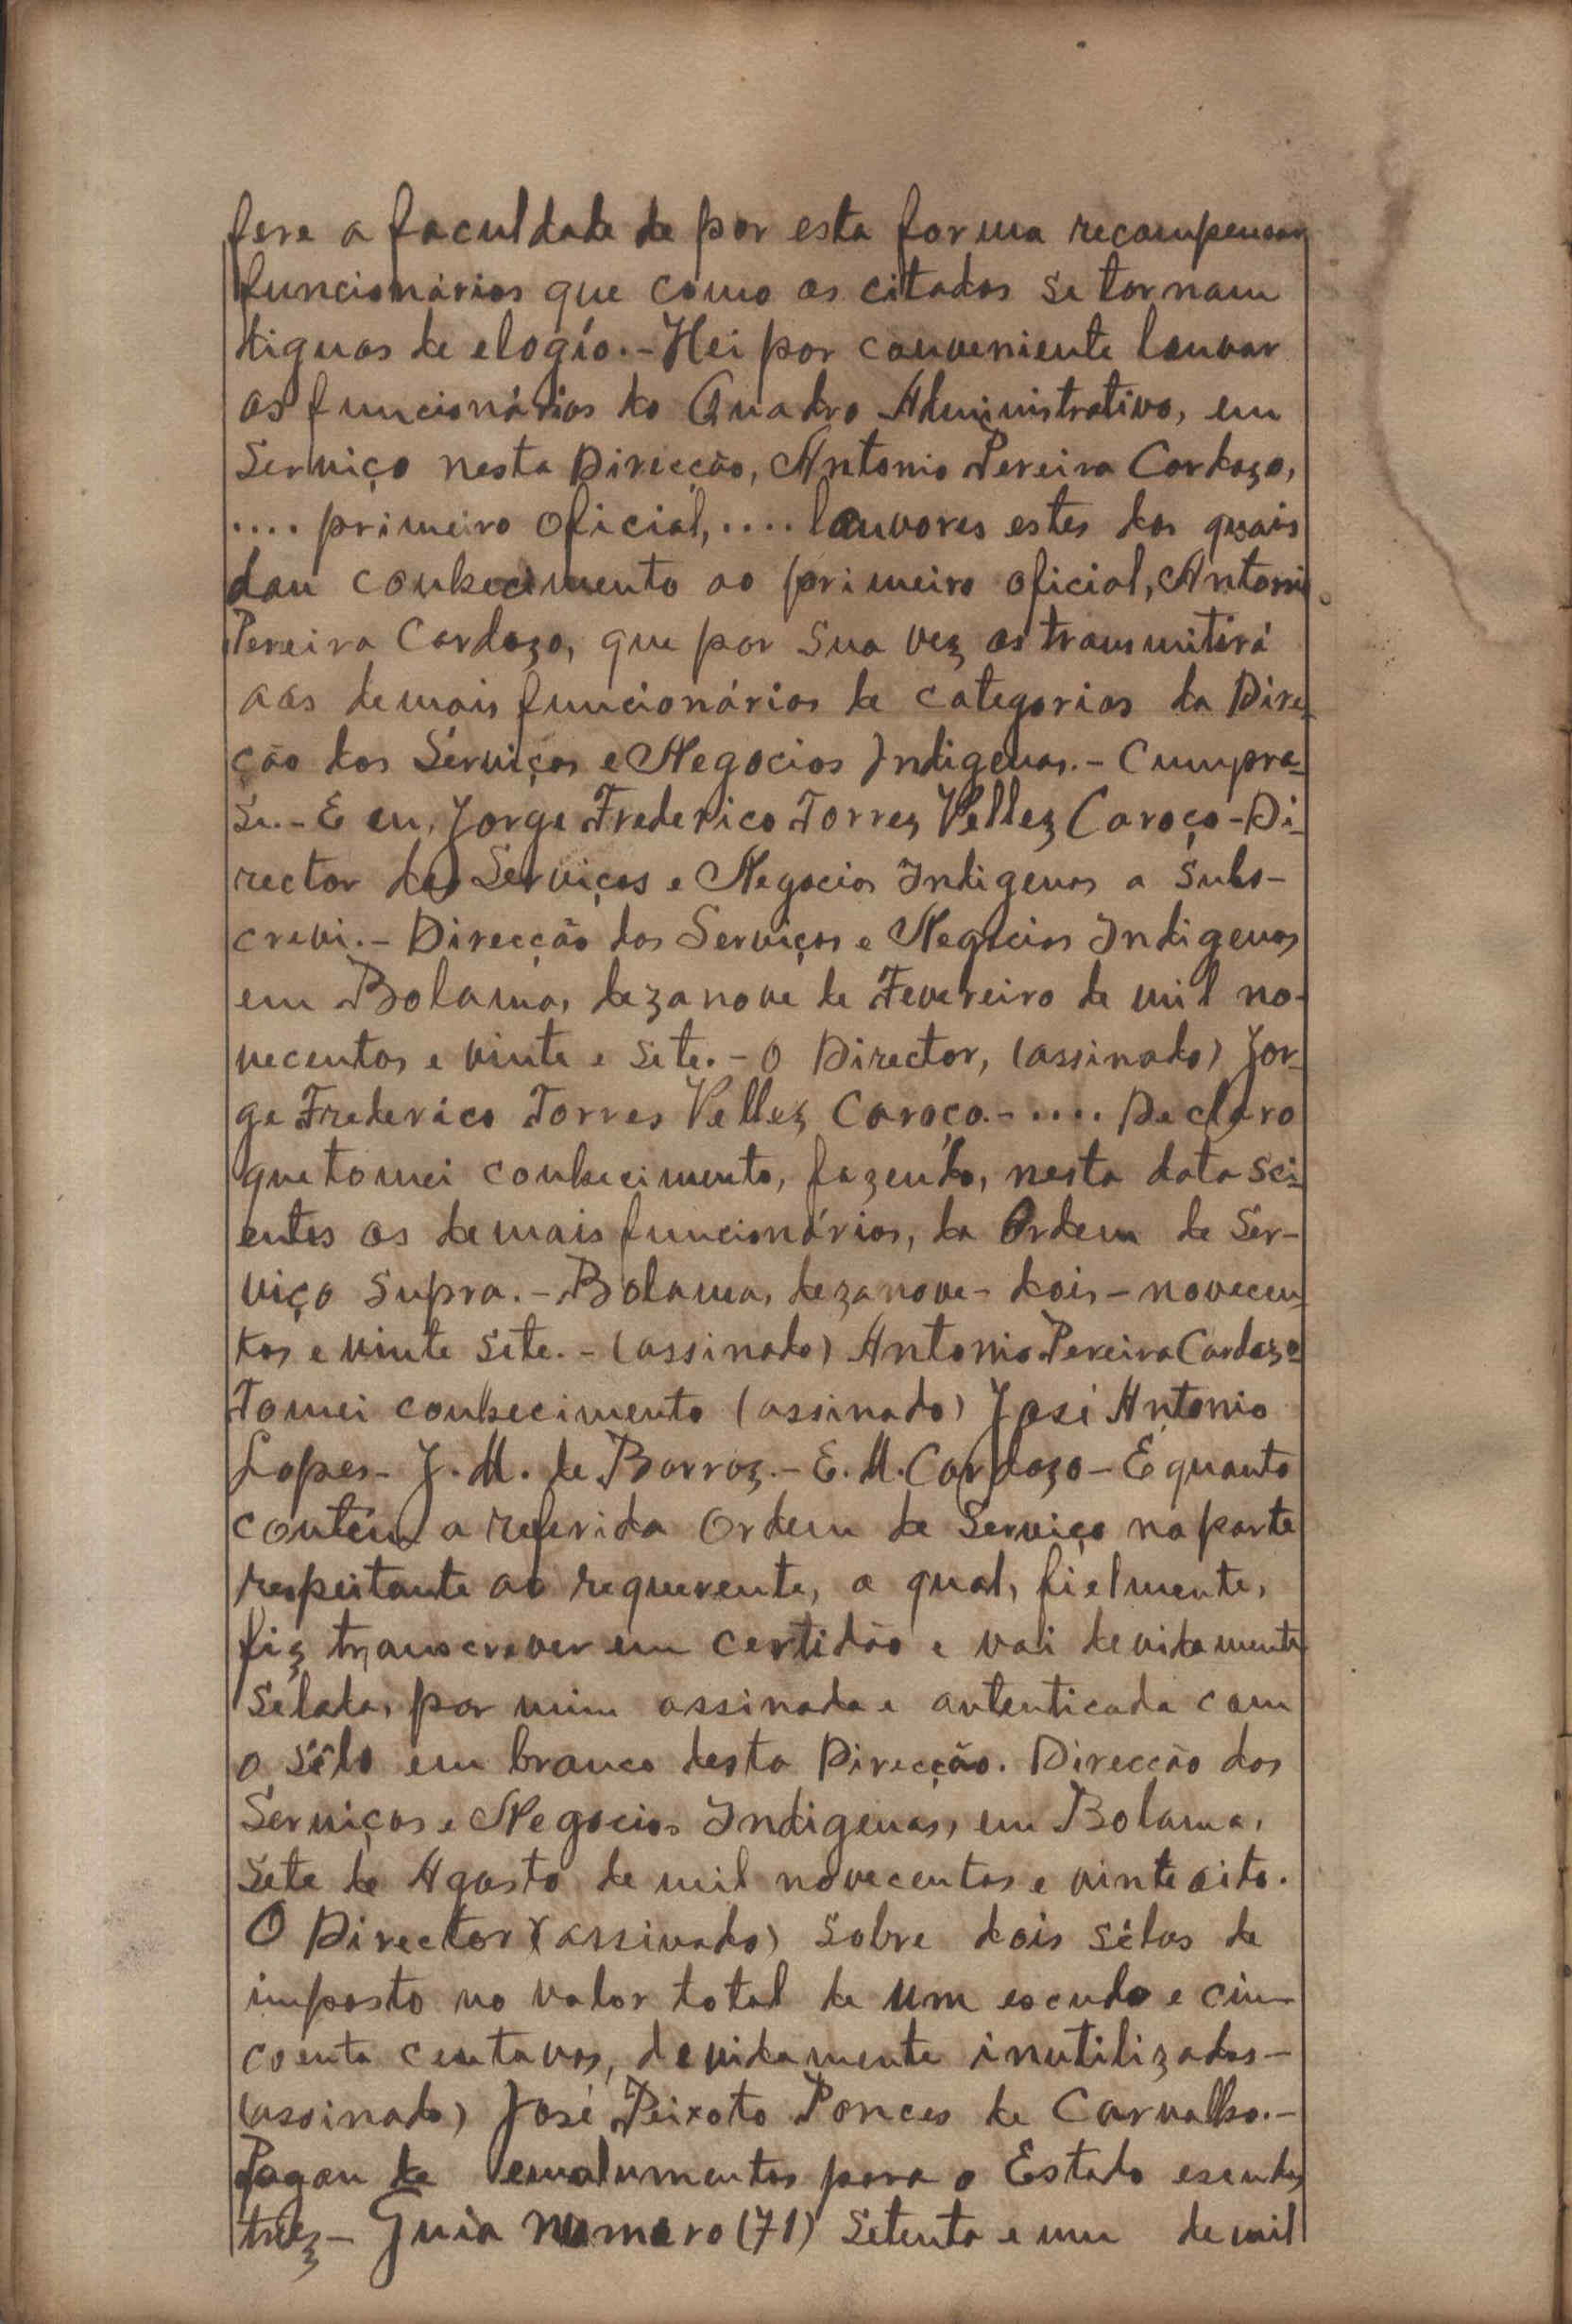 fere a faculdade de por esta forma recompensar
funcionários que como os citados se tornam
dignos de elogío.- Hei por conveniente louvar
os funcionários do Quadro Administrativo, em
Serviço nesta Direcção, Antonio Pereira Cardozo,
.... primeiro oficial, .... louvores estes dos quais
dou conhecimento ao primeiro oficial, Antonio
Pereira Cardozo, que por sua vez os transmitirá
aos demais funcionários de categorias da Dire-
ção dos Serviços e Negocios Indigenas.- Cumpra-
se.- E eu, Jorge Frederico Torrez Vellez Caroço - Di-
rector dos Serviços e Negocios Indigenas a subs-
crevi.- Direcção dos Serviços e Negocios Indigenas
em Bolama, dezanove de Fevereiro de mil no-
vecentos e vinte e sete.- O Director, (assinado) Jor-
ge Frederico Torres Vellez Caroço.- .... Declaro
que tomei conhecimento, fazendo, nesta data sci-
entes os demais funcionários, da Ordem de Ser-
viço supra.- Bolama, dezanove - dois - novecen-
tos e vinte sete.- (assinado) Antonio Pereira Cardozo
Tomei conhecimento (assinado) José Antonio
Lopes - J. M. de Barroz.- E. M. Cardozo - É quanto
contém a referida Ordem de Serviço na parte
respeitante ao requerente, a qual, fielmente,
fiz transcrever em certidão e vai devidamente
selada, por mim assinada e autenticada com
o sêlo em branco desta Direcção. Direcção dos
Serviços e Negocios Indigenas, em Bolama,
sete de Agosto de mil novecentos e vinte oito.
O Director (assinado) sobre dois sêlos de
imposto no valor total de um escudo e cin-
coenta centavos, devidamente inutilizados -
(assinado) José Peixoto Ponces de Carvalho.-
Pagou de emolumentos para o Estado escudos
trez - Guia numero (71) Setenta e um de mil